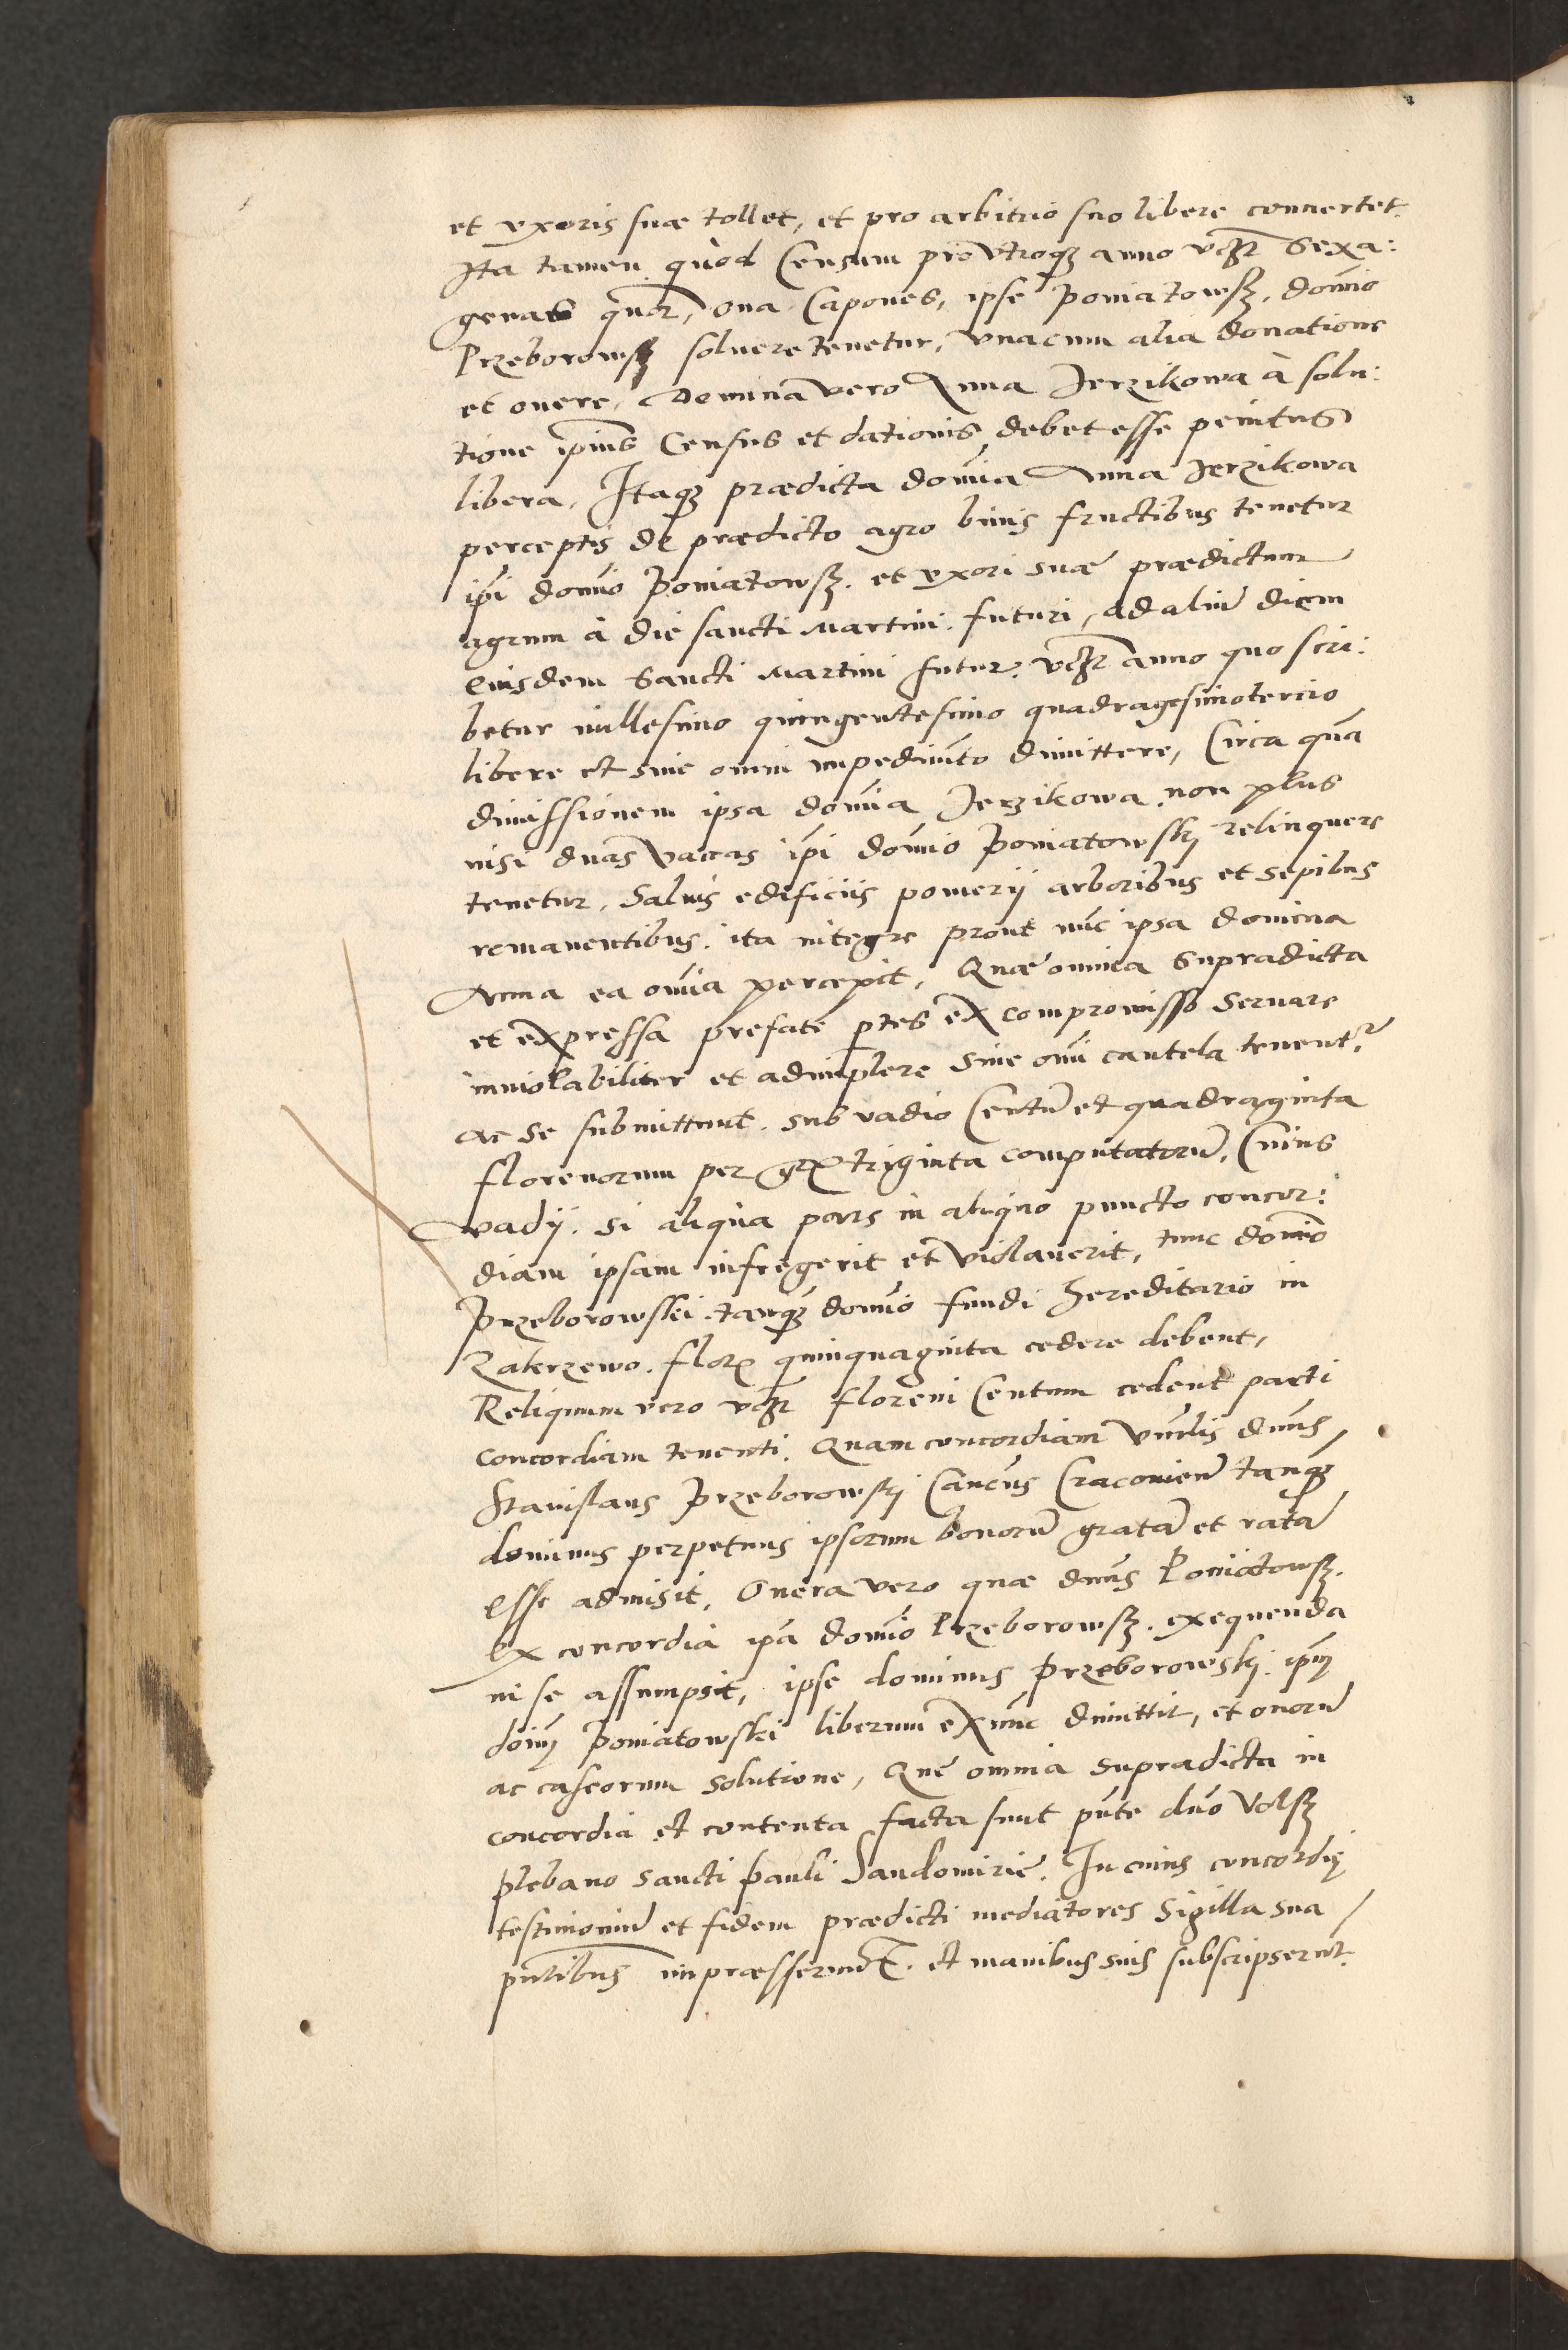 et vxoris suæ tollet, et pro arbitrio suo libere conuertet.
Ita tamen quòd Censum pro vtroq3 anno vcz Sexa:
genas quor, oua Capones, ipse Poniatowsk3, domio
Przeborowsk3 soluere tenetur, vnacum alia donatione
et onere, Domina vero Anna Jerzikowa à solu:
tione ipius Census et dationis debet esse penitus
libera, Itaq3 prædicta domia Anna Jerzikowa
perceptis de prædicto agro binis fructibus tenetur
ipi domio Poniatowsk3. et vxori suæ prædictum
agrum à die sancti Martini futuri, ad aliu diem
eiusdem Sancti Martini futur. vcz anno quo scri:
betur millesimo quingentesimo quadragesimotercio
libere et sine omni impedimto dimittere, Circa qua
dimissionem ipsa domia Jerzikowa non plus
nisi duas vaccas ipi domio Poniatowskj relinquere
tenetur, Saluis edificiis pomerij arboribus et sepibus
remanentibus. ita integre prout nuc ipsa domina
Anna ea omia percepit, Quæ omnia Supradicta
et expressa prefate ptes ex compromisso Seruare
inuiolabiliter et adimplere sine omi cautela tenent
ac se submittunt. sub vadio Centu et quadraginta
florenorum per gr triginta computatoru, Cuius
vadij. si aliqua pars in aliquo puncto concor:
diam ipsam infregerit et violauerit, tunc domio
Przeborowski tanq3 domio fundi hereditario in
Zakrzewo. flor quinquaginta cedere debent,
Reliquum vero vcz floreni Centum cedent parti
concordiam tenenti. Quam concordiam Vnrlis dnus
Stanislaus Przeborowskj Cancus Cracouien tanq3
dominus perpetuus ipsorum bonoru grata et rata
esse admisit, Onera vero quæ dnus Poniatowsk3.
ex concordia ipa domio Przeborowsk3. exequenda
in se assumpsit, ipse dominus Przeborowskj ipm
dom Poniatowski liberum exnunc dimittit, et ouoru
ac caseorum solutione, Que omnia supradicta in
concordia et contenta facta sunt pnte dno Volsk3
plebano sancti Pauli Sandomirie. In cuius concordie
testimoniu et fidem prædicti mediatores Sigilla sua
pntibus impræsserunt. et manibus suis subscripserut.